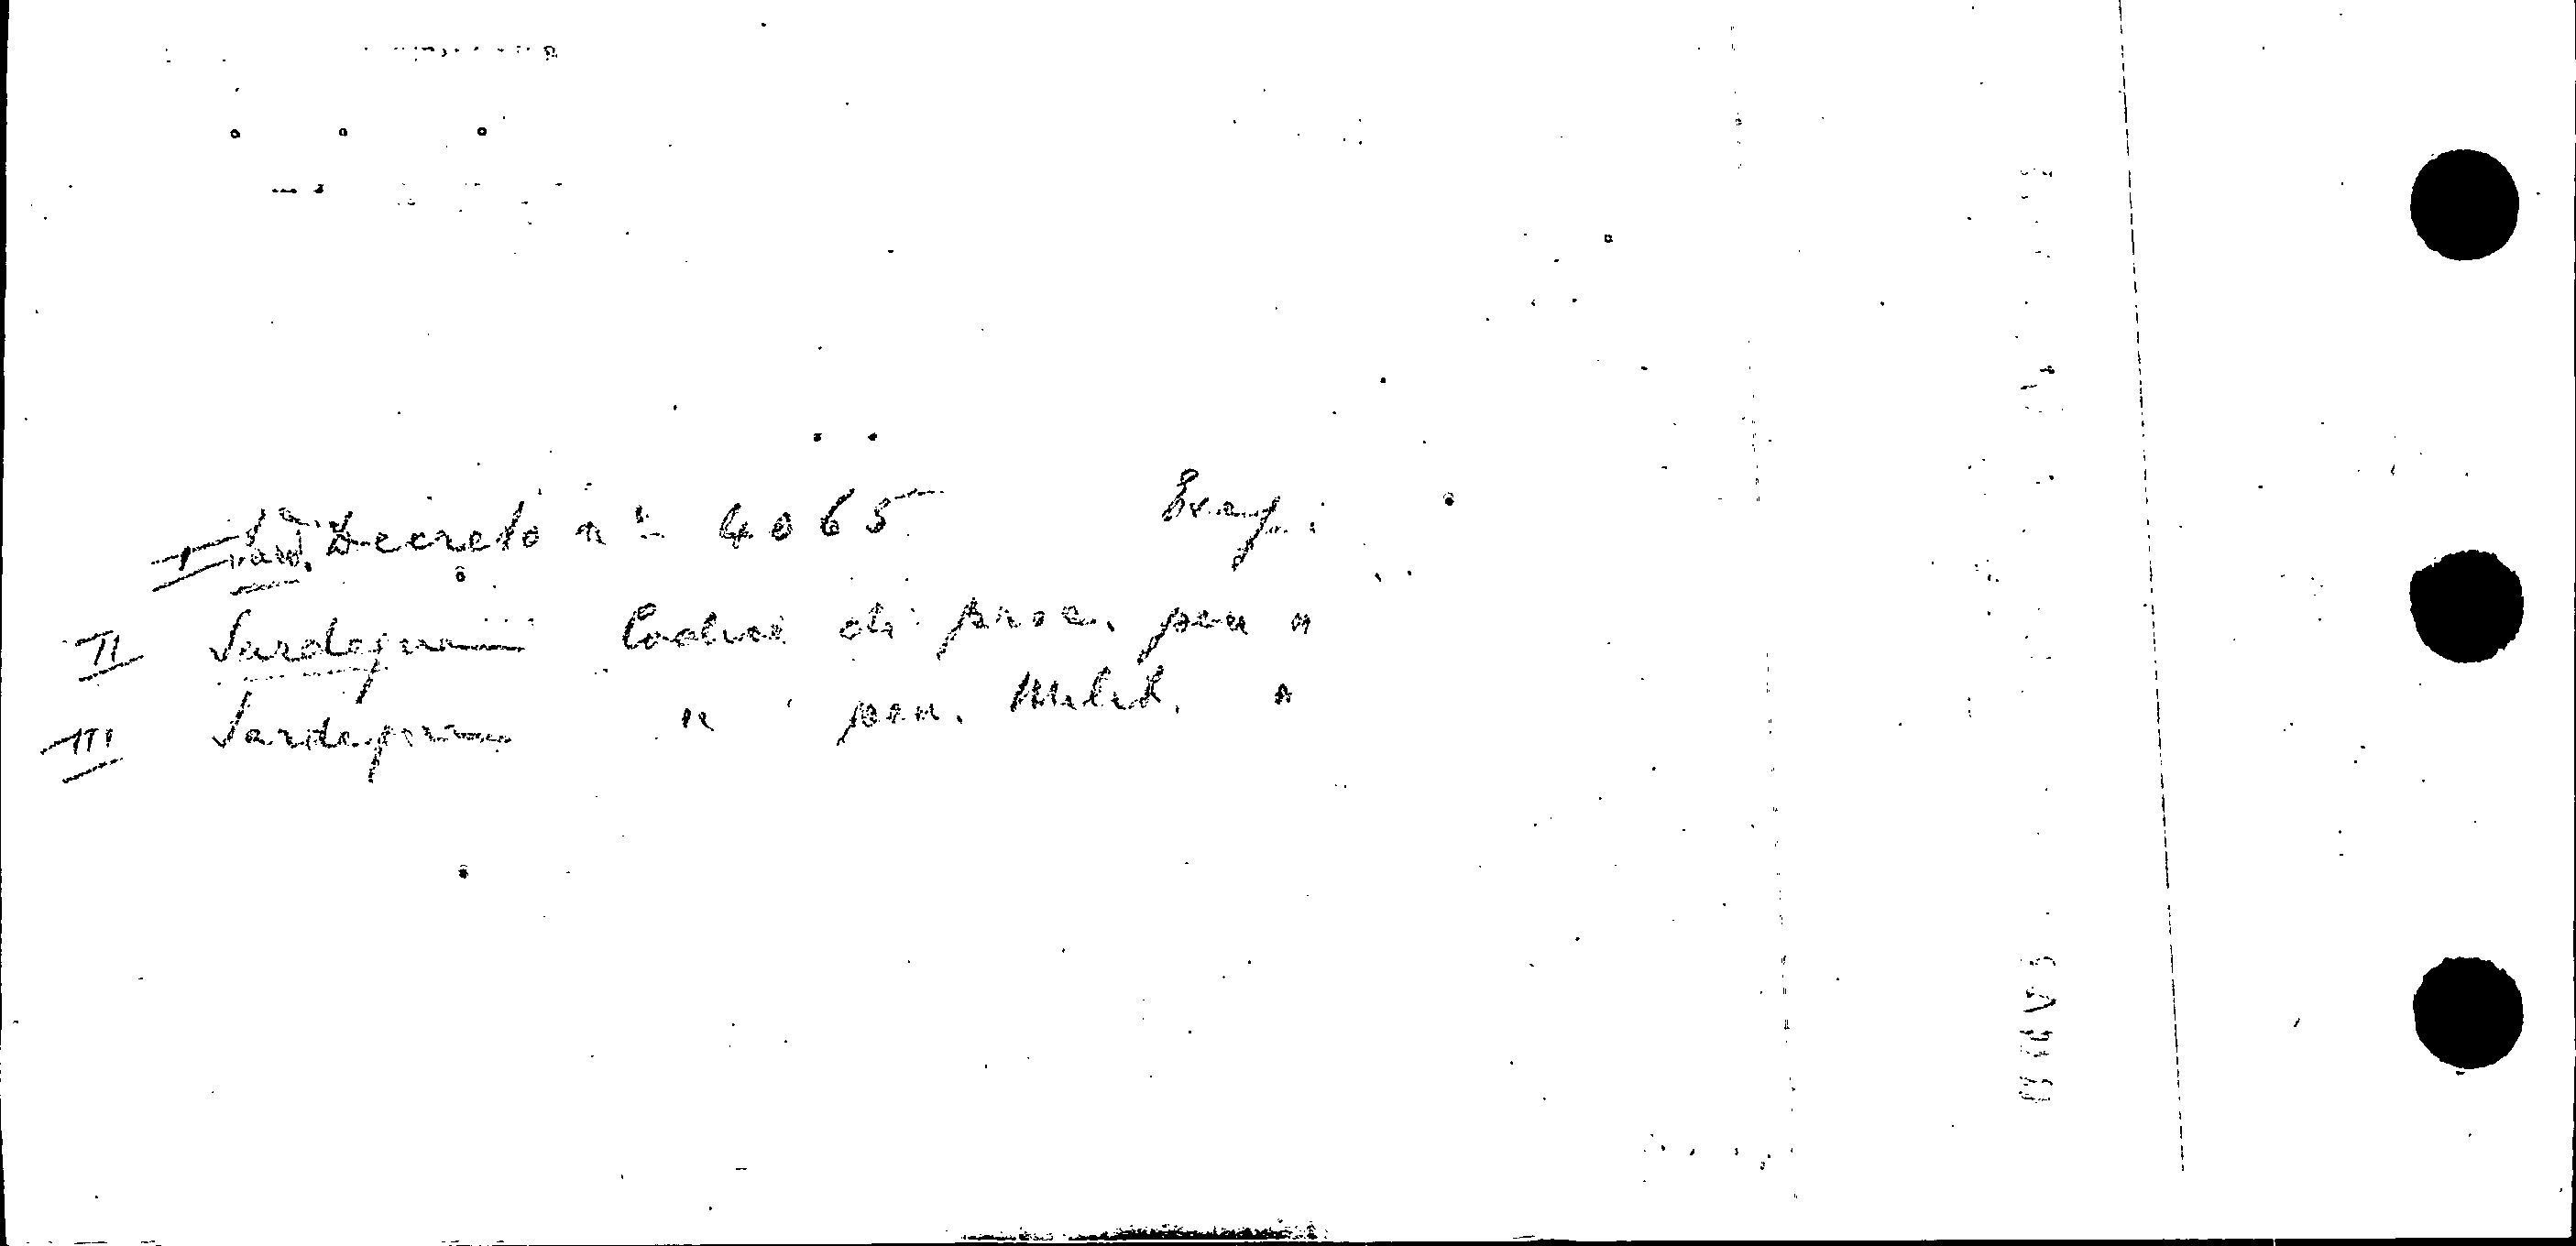 I Sard. Decreto n° 4065
II Sardegna Codice di proc. pen "
III Sardegna " pen. Milit. "